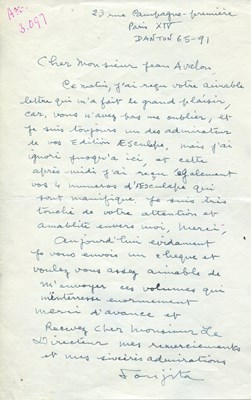 A 22.
3.097
23 rue Campagne-première
Paris XIV
DANTON 65-91
Cher Monsieur Jean Avalon,
Ce matin, j'ai reçu votre aimable
lettre qui m'a fait le grand plaisir,
car, vous n'avez pas me oublier, et
Je suis toujours un des admirateur
de vos Edition Æsculape, mais j'ai
ignori jusqu'a ici, et cette
après-midi j'ai reçu également
vos 4 numeros d'Æsculape qui
sont manifique Je suis très
touché de votre attention et
amabilité envers moi, Merci,
Aujourd'hui evidament
Je vous envois un cheque et
voulez vous assez aimable de
m'envoyer ces volumes qui
m'intéresse enormement
merci d'avance et
Recevez Cher Monsieur Le
Directeur mes remerciements
et mes sincères admirations
Foujita